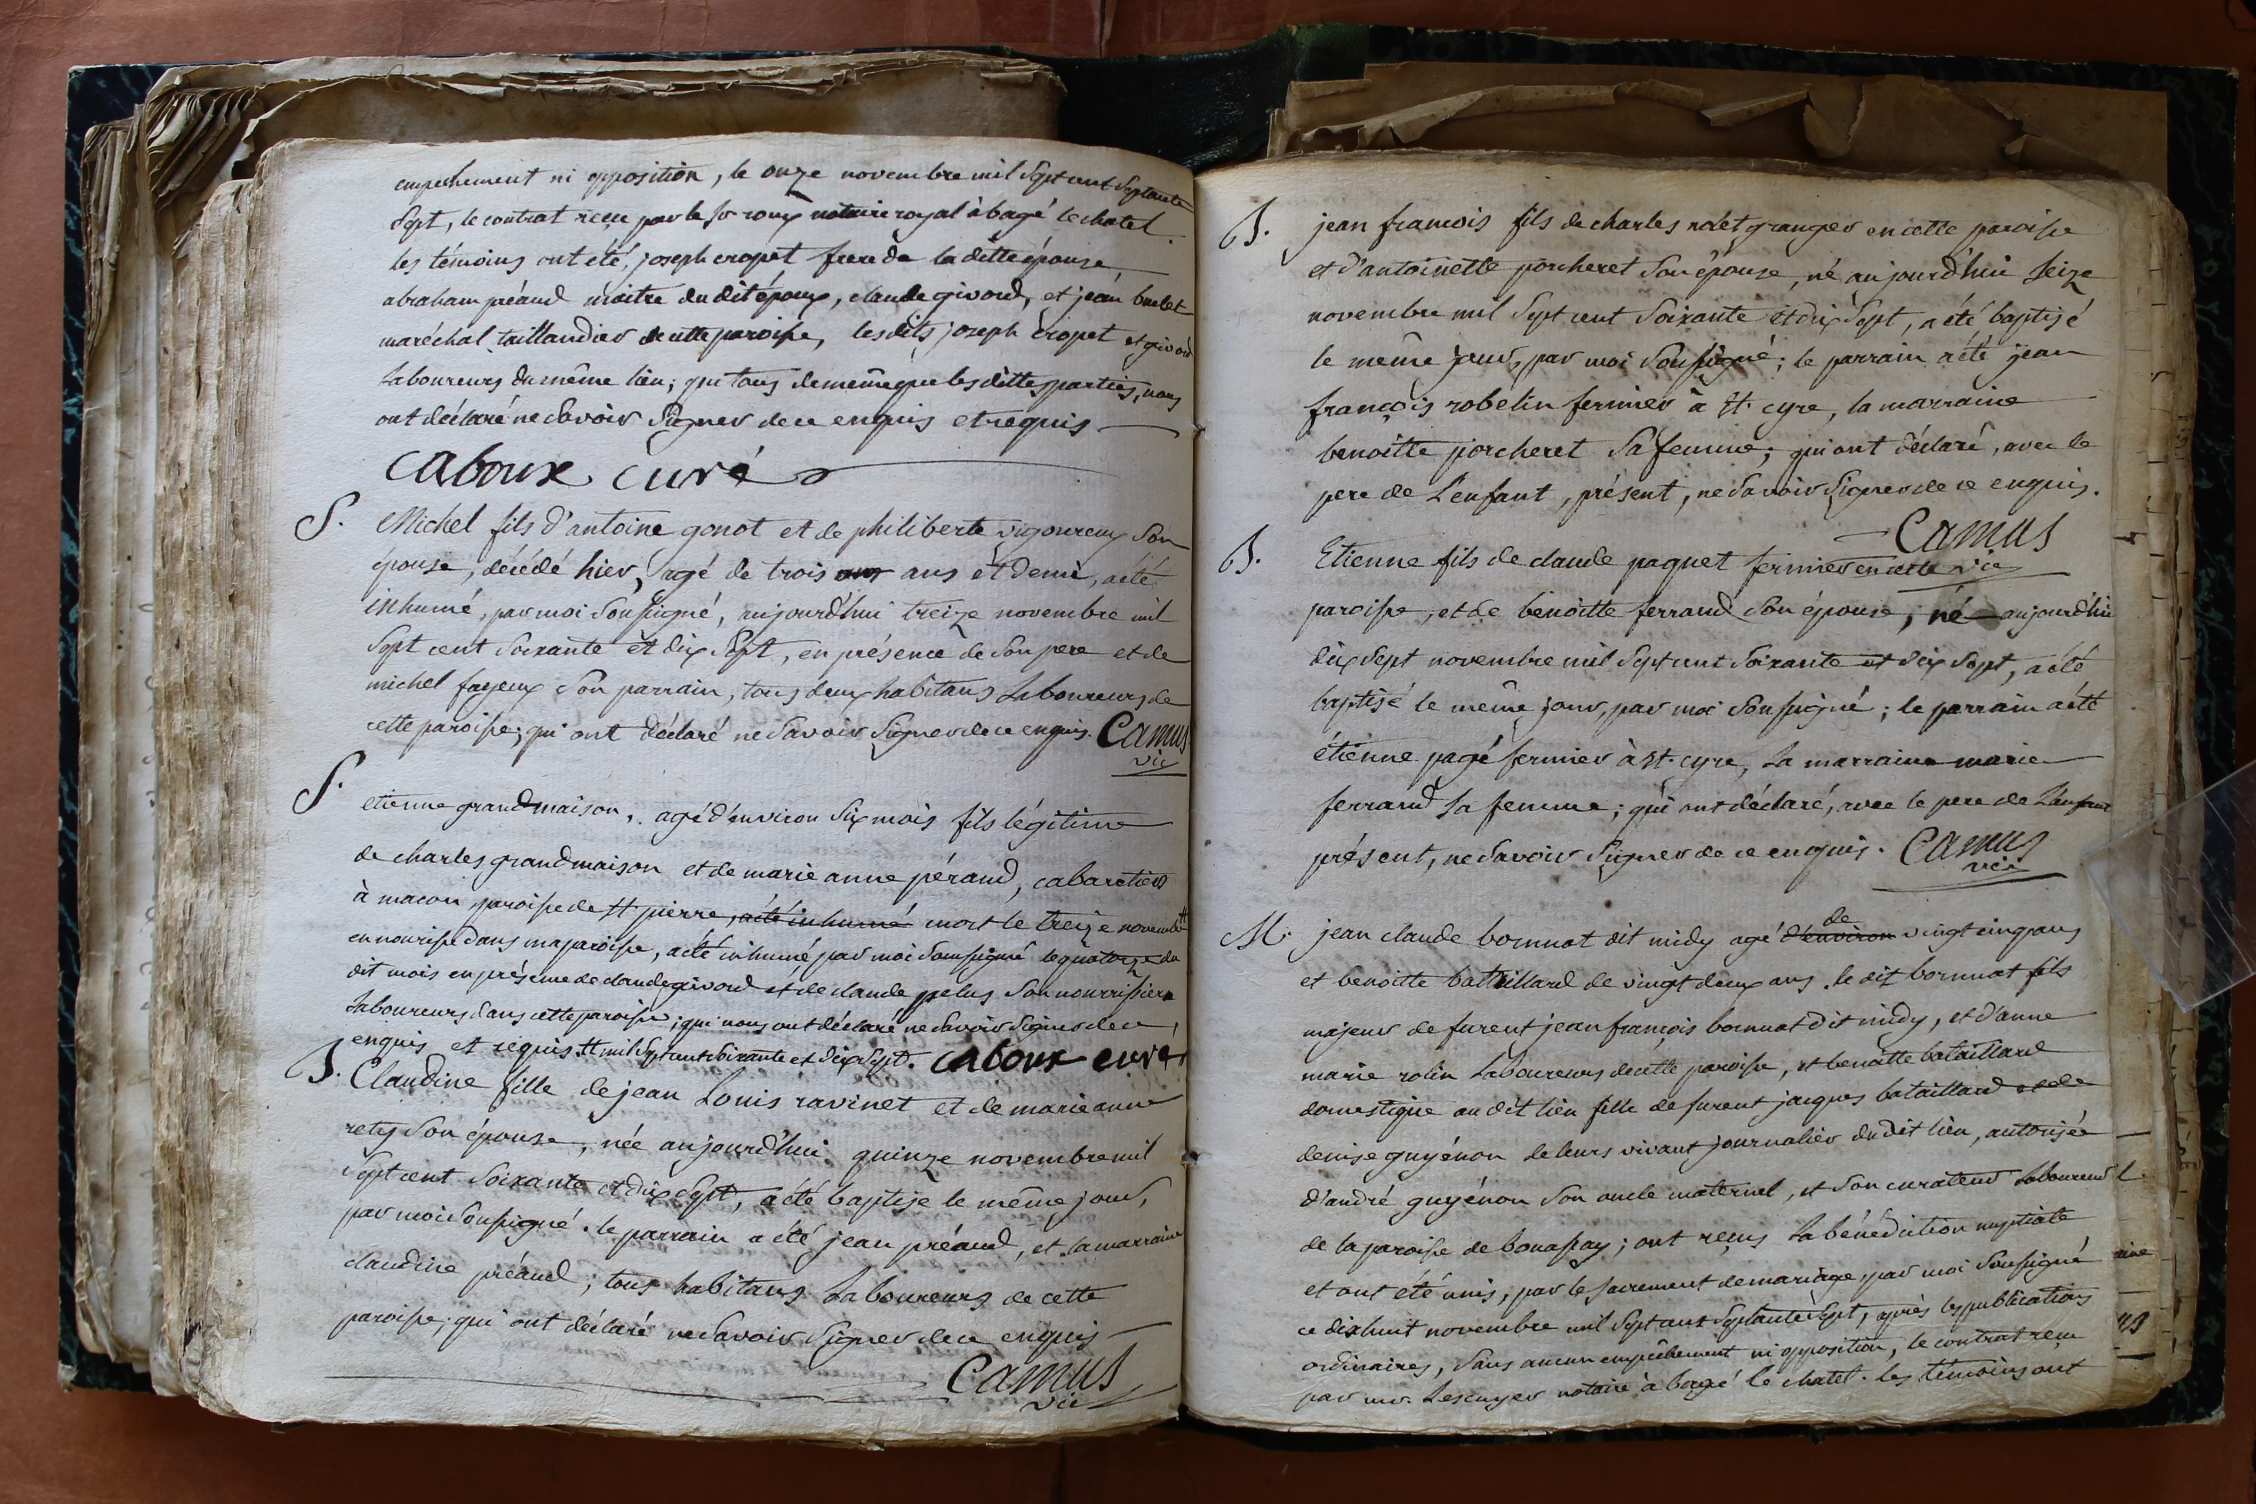 empechement ni opposition, le onze novembre mil sept cent septante
sept, le contrat reçu par le sr roux notaire royal à bagé le chatel.
les témoins ont été, joseph cropet frere de la ditte épouse
abraham préaud maitre du dit époux, claude givord, et jean brulet
maréchal taillandier de cette paroisse, les dits joseph cropet et givord
laboureurs du même lieu; qui tous de même que les dittes parties, nous
ont déclaré ne savoir signer de ce enquis et requis
caboux curé
S. Michel fils d'antoine gonot et de philiberte vigoureux son
épouse, décédé hier, agé de trois ans et demi, a été
inhumé, par moi soussigné, aujourd'hui treize novembre mil
sept cent soixante et dix sept, en présence de son pere et de
michel fayeux son parrain, tous deux habitans laboureurs de
cette paroisse; qui ont déclaré ne savoir signer de ce enquis. Camus
vic
S. etienne grandmaison, agé d'environ six mois fils légitime
de charles grandmaison et de marie anne péraud, cabaretier
à macon, paroisse de st. pierre, a été inhumé mort le treize novembre #
en nourisse dans ma paroisse, a été inhumé par moi soussigné le quatorze du
dit mois en présence de claude givord et de claude pelus son nourrissier
laboureurs dans cette paroisse; qui nous ont déclaré ne savoir signer de ce,
enquis et requis # mil sept cent soixante et dix sept. caboux curé
B. Claudine fille de jean Louis ravinet et de marie anne
rety son épouse, née aujourd'hui quinze novembre mil
sept cent soixante et dix sept, a été baptise le même jour,
par moi soussigné. le parrain a été jean préaud, et la marraine
claudine préaud; tous habitans laboureurs de cette
paroisse; qui ont déclaré ne savoir signer de ce enquis
Camus
vic
B. jean francois fils de charles nolet granger en cette paroisse
et d'antoinette porcheret son épouse, né aujourd'hui seize
novembre mil sept cent soixante et dix sept, a été baptizé
le même jour, par moi soussigné; le parrain a été jean
françois robelin fermier à st. cyre, la marraine
benoitte porcheret sa femme; qui ont déclaré, avec le
pere de l'enfant, présent, ne savoir signer de ce enquis.
Camus
vic
B. Etienne fils de claude paquet fermier en cette
paroisse, et de benoitte ferrand son épouse; né aujourd'hui
dix sept novembre mil sept cent soixante et dix sept, a été
baptisé le même jour, par moi soussigné; le parrain a été
étienne pagé fermier à st. cyre, la marraine marie
ferrand sa femme; qui ont déclaré, avec le pere de l'enfant
présent, ne savoir signer de ce enquis. Camus
vic
de
M. jean claude bornuat dit midy agé d'environ vingt cinq ans
et benoitte bataillard de vingt deux ans. le dit bornuat fils
majeur de furent jean françois bornuat dit midy, et d'anne
marie rolin laboureurs de cette paroisse, et benoitte bataillard
domestique au dit lieu fille de furent jacques bataillard et de
denise guyénon de leurs vivant journalier du dit lieu, autorisée
d'andré guyénon son oncle maternel, et son curateur laboureur
de la paroisse de bonassay; ont reçus la bénédiction nuptiale
et ont été unis, par le sacrement de mariage, par moi soussigné
ce dixhuit novembre mil sept cent septante sept, après les publications
ordinaires, sans aucun empêchement ni opposition, le contrat reçu
par mr. Lescuyer notaire à bagé le chatel. les témoins ont